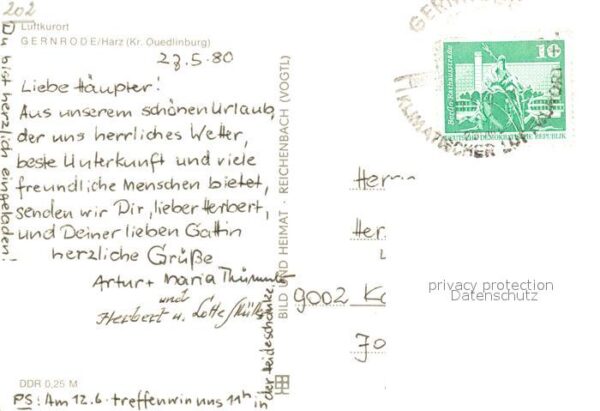 202
Luftkurort
GERNRODE/Harz (Kr. Quedlinburg)
23.5.80
Liebe Häupter!
Aus unserem schönen Urlaub,
der uns herrliches Wetter,
beste Unterkunft und viele
freundliche Menschen bietet,
senden wir Dir, lieber Herbert,
und Deiner lieben Gattin
herzliche Grüße
Artur + Maria
und
Herbert u. Lotte
PS: Am 12.6. treffen wir uns 11h in
der Heideschänke.
Du bist herzlich eingeladen!
DDR 0,25 M
BILD UND HEIMAT · REICHENBACH (VOGTL)
GERNRODE
KLIMATISCHER LUFTKURORT
Berlin-Rathausstraße
10
DEUTSCHE DEMOKRATISCHE REPUBLIK
Herrn
Her
9002 Ka
70
privacy protection
Datenschutz